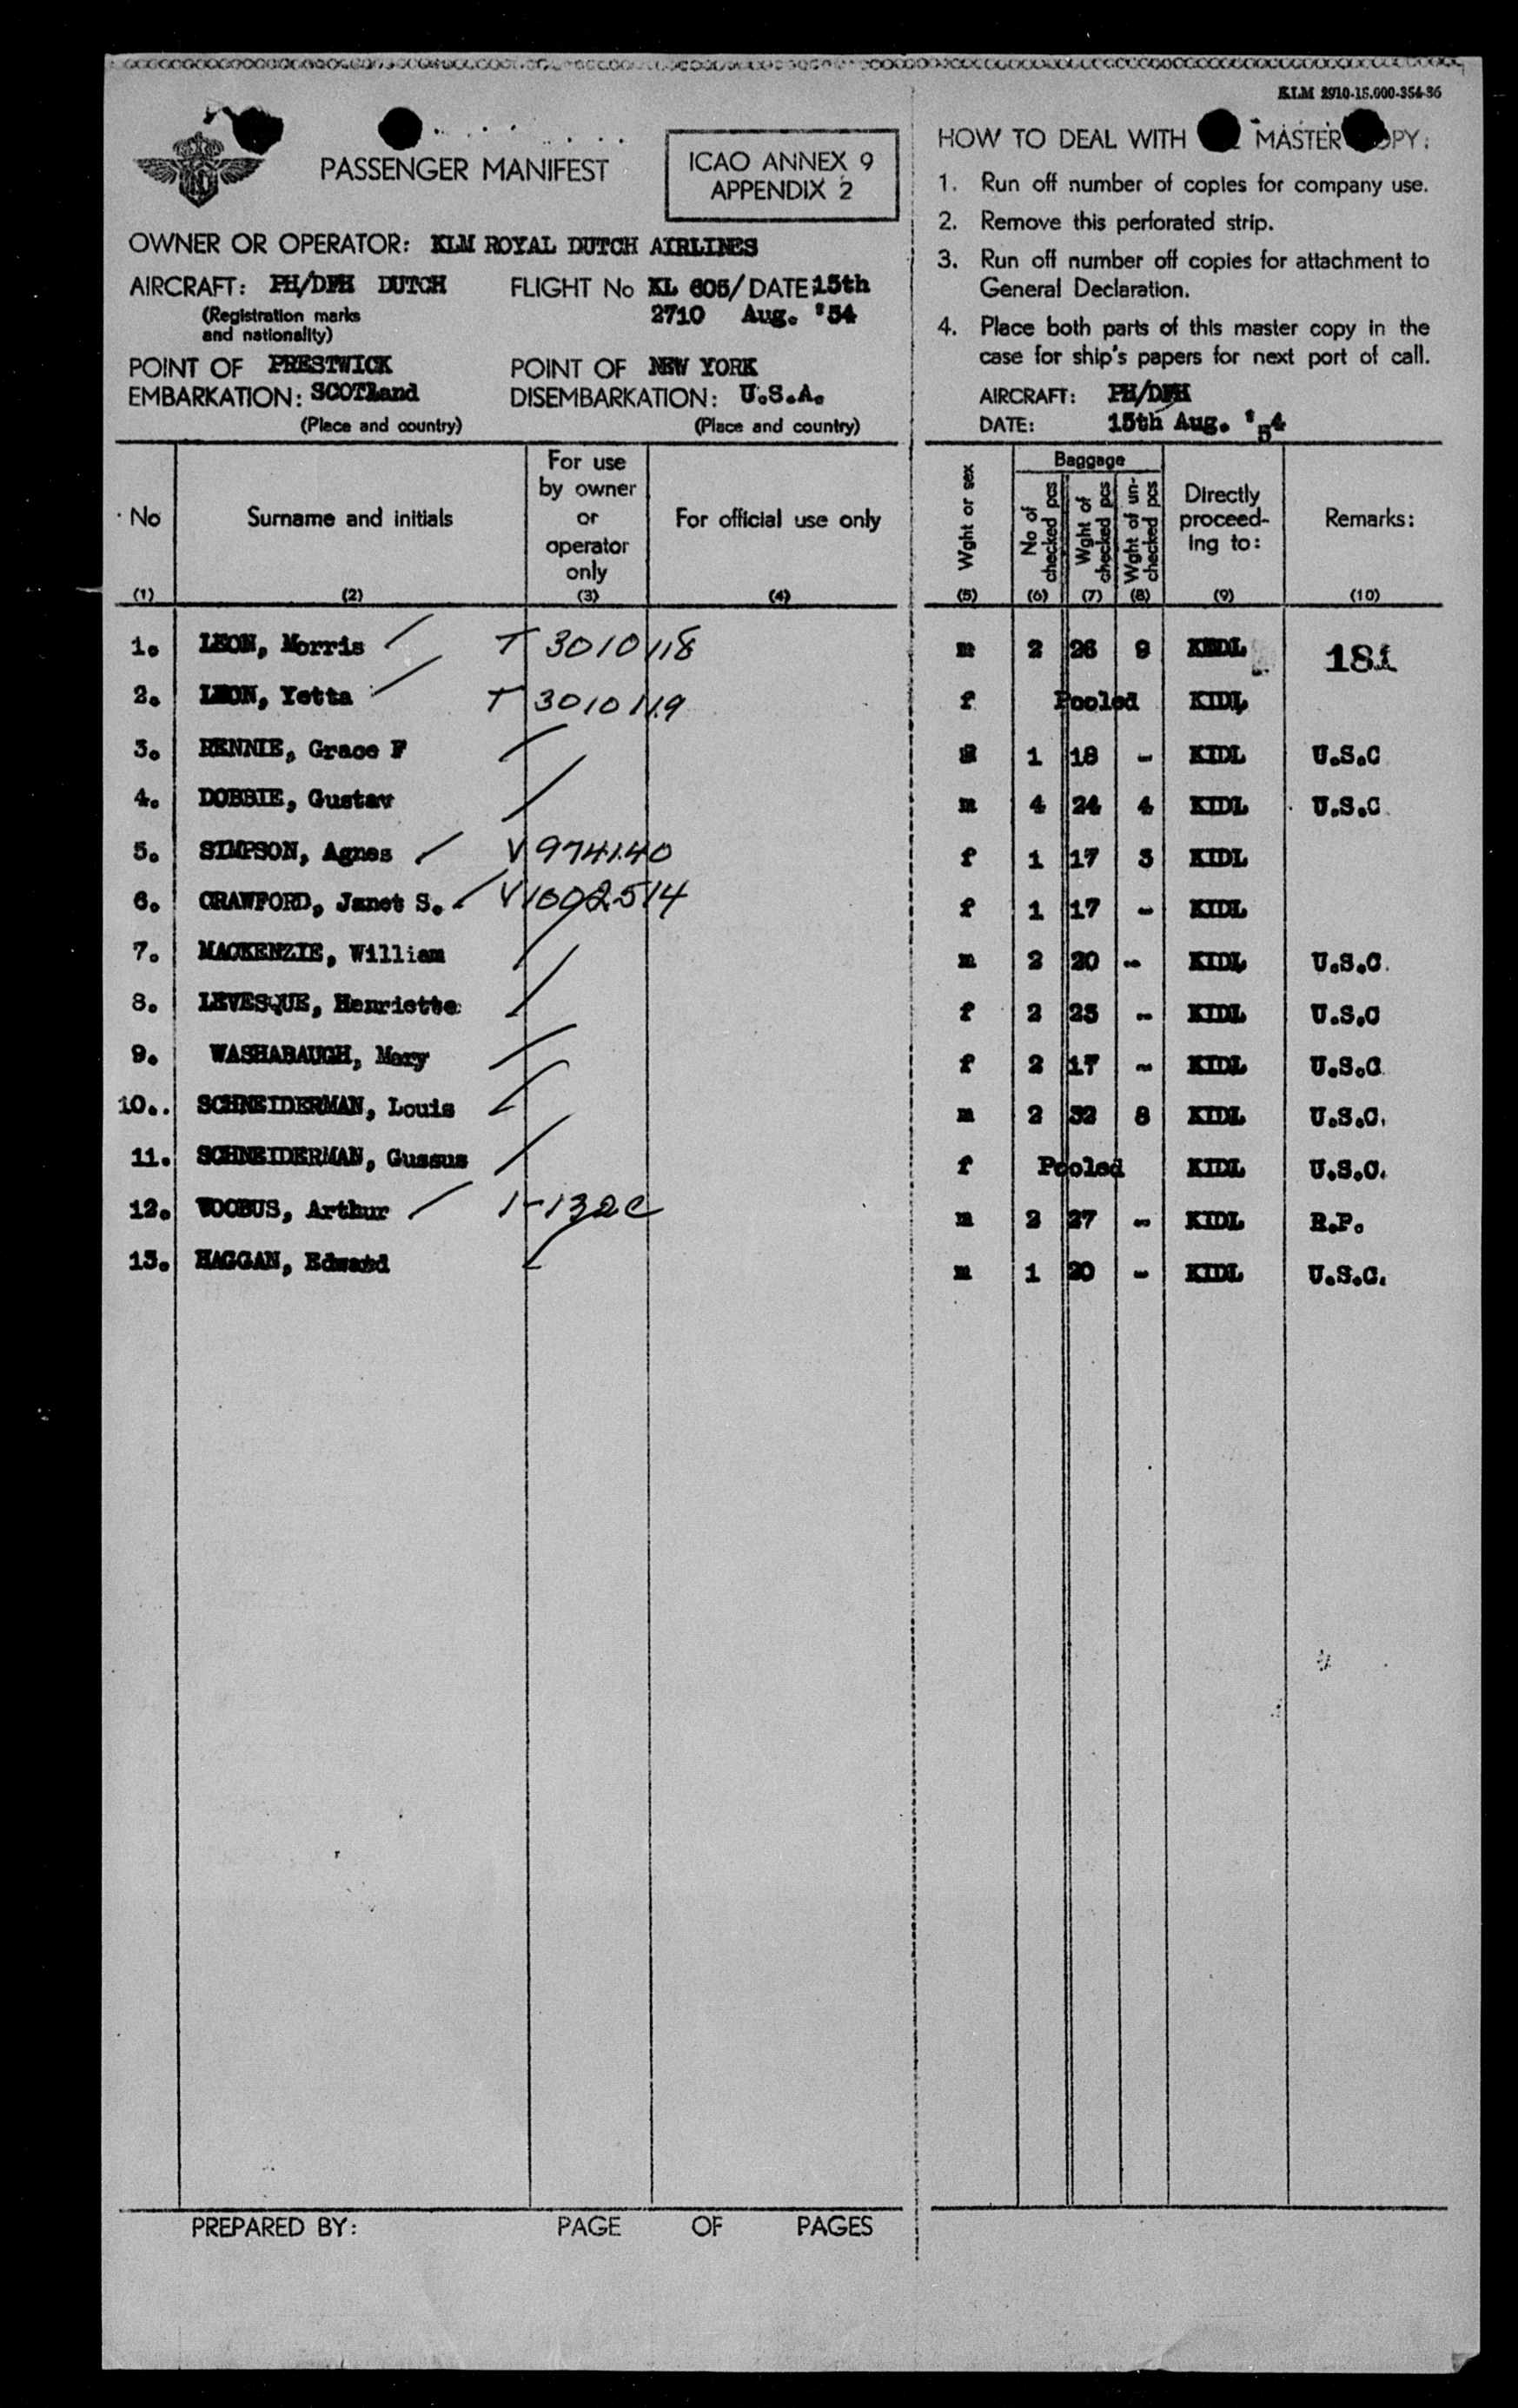 KLM 2910-15.000-354-36
PASSENGER MANIFEST
ICAO ANNEX 9
APPENDIX 2
OWNER OR OPERATOR: KLM ROYAL DUTCH AIRLINES
AIRCRAFT: PH/DFH DUTCH FLIGHT No KL 605/ DATE 15th
(Registration marks 2710 Aug. '54
and nationality)
POINT OF PRESTWICK POINT OF NEW YORK
EMBARKATION: SCOTland DISEMBARKATION: U.S.A.
(Place and country) (Place and country)
HOW TO DEAL WITH MASTER
1. Run off number of copies for company use.
2. Remove this perforated strip.
3. Run off number off copies for attachment to
General Declaration.
4. Place both parts of this master copy in the
case for ship's papers for next port of call.
AIRCRAFT: PH/DFH
DATE: 15th Aug. '54
No Surname and initials For use by owner or operator only For official use only Wght or sex Baggage No of checked pcs Wght of checked pcs Wght of un-checked pcs Directly proceed-ing to: Remarks:
(1) (2) (3) (4) (5) (6) (7) (8) (9) (10)
1. LEON, Morris T 3010118 m 2 26 9 KIDL 181
2. LEON, Yetta T 3010119 f Pooled KIDL
3. RENNIE, Grace F 1 18 - KIDL U.S.C
4. DOBBIE, Gustav m 4 24 4 KIDL U.S.C.
5. SIMPSON, Agnes V 974140 f 1 17 3 KIDL
6. CRAWFORD, Janet S. V 1002514 f 1 17 - KIDL
7. MACKENZIE, William m 2 20 - KIDL U.S.C.
8. LEVESQUE, Henriette f 2 23 - KIDL U.S.C
9. WASHABAUGH, Mary f 2 17 - KIDL U.S.C
10. SCHNEIDERMAN, Louis m 2 32 8 KIDL U.S.C.
11. SCHNEIDERMAN, Gussus f Pooled KIDL U.S.C.
12. VOOBUS, Arthur 1-132c m 2 27 - KIDL R.P.
13. HAGGAN, Edward m 1 20 - KIDL U.S.C.
PREPARED BY: PAGE OF PAGES